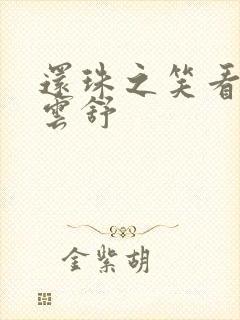 還珠之笑看
雲舒
金紫胡